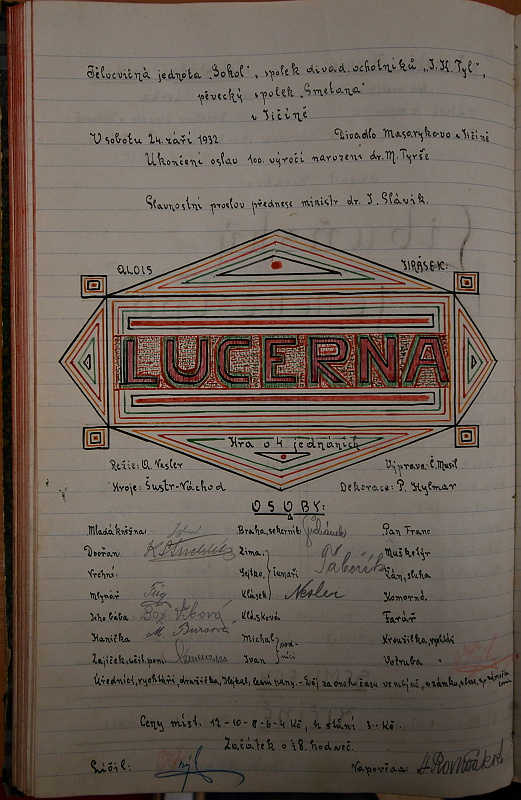 Tělocvičná jednota „Sokol", spolek divad. ochotníků „J. K. Tyl",
pěvecký spolek „Smetana"
v Jičíně
V sobotu 24. září 1932 Divadlo Masarykovo v Jičíně
Ukončení oslav 100. výročí narození dr. M. Tyrše
Slavnostní proslov přednese ministr dr. I. Slávik.
ALOIS JIRÁSEK:
LUCERNA
Hra o 4 jednáních
Režie: A. Nesler Výprava: Č. Musil
Kroje: Šustr-Náchod Dekorace: P. Hylmar
OSOBY:
Mladá kněžna Braha, sekerník Pan Franc
Dvořan Zima, Mušketýr
Vrchní Sejtko, šumaři Táborák Pán, sluha
Mlynář Klásek Nesler Komorná
Jeho bába Klásková Farář
Hanička M. Bursová Michal Kroušilka, rychtář
Zajíček, učit. pom. Ivan Votruba "
Ceny míst. 12-10-8-6-4 Kč, k stání 3.- Kč.
Začátek o 18. hodině.
Líčil: Napovídá: